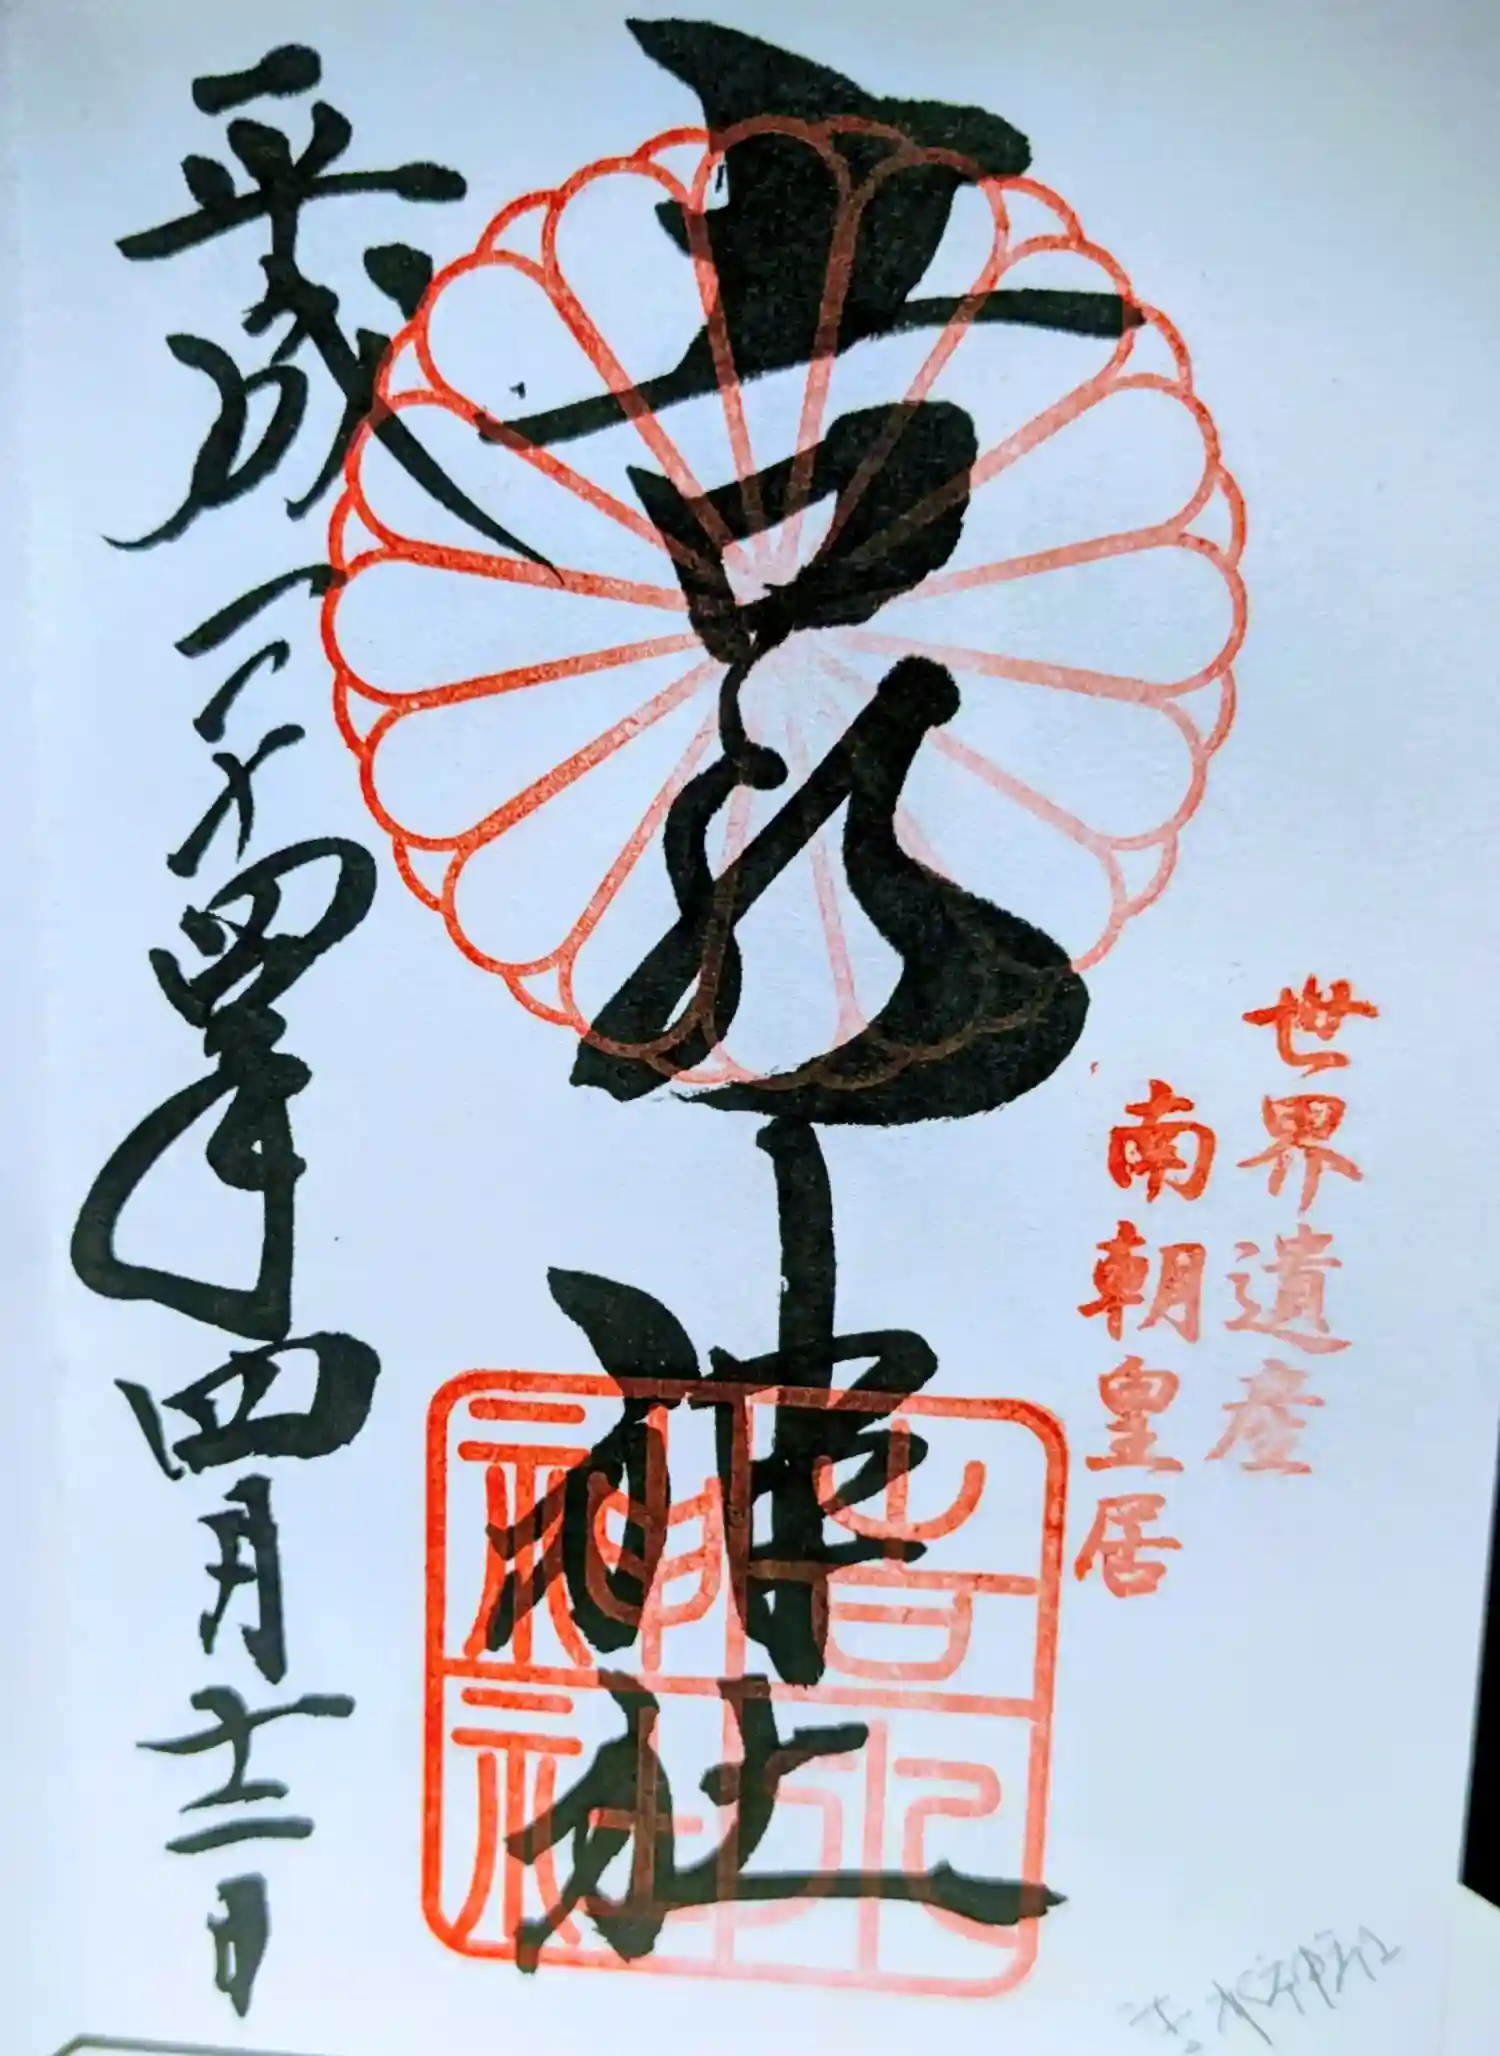 世界遺産
南朝皇居
吉水神社
吉水神社
平成二十四年四月十二日
吉水神社